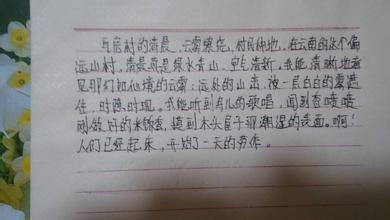 瓦房村的清晨，云雾缭绕，村民种地。在云南的这个偏
远山村，清晨真是绿水青山，空气清新，我能清晰地看
见那幻如仙境的云雾；远处的山峦，被一层白白的雾遮
住，时隐时现。我能听到鸟儿的歌唱，闻到香喷喷
刚做好的米饭香，摸到木头屋子那潮湿的表面。啊！
人们已经起床，开始了一天的劳作。